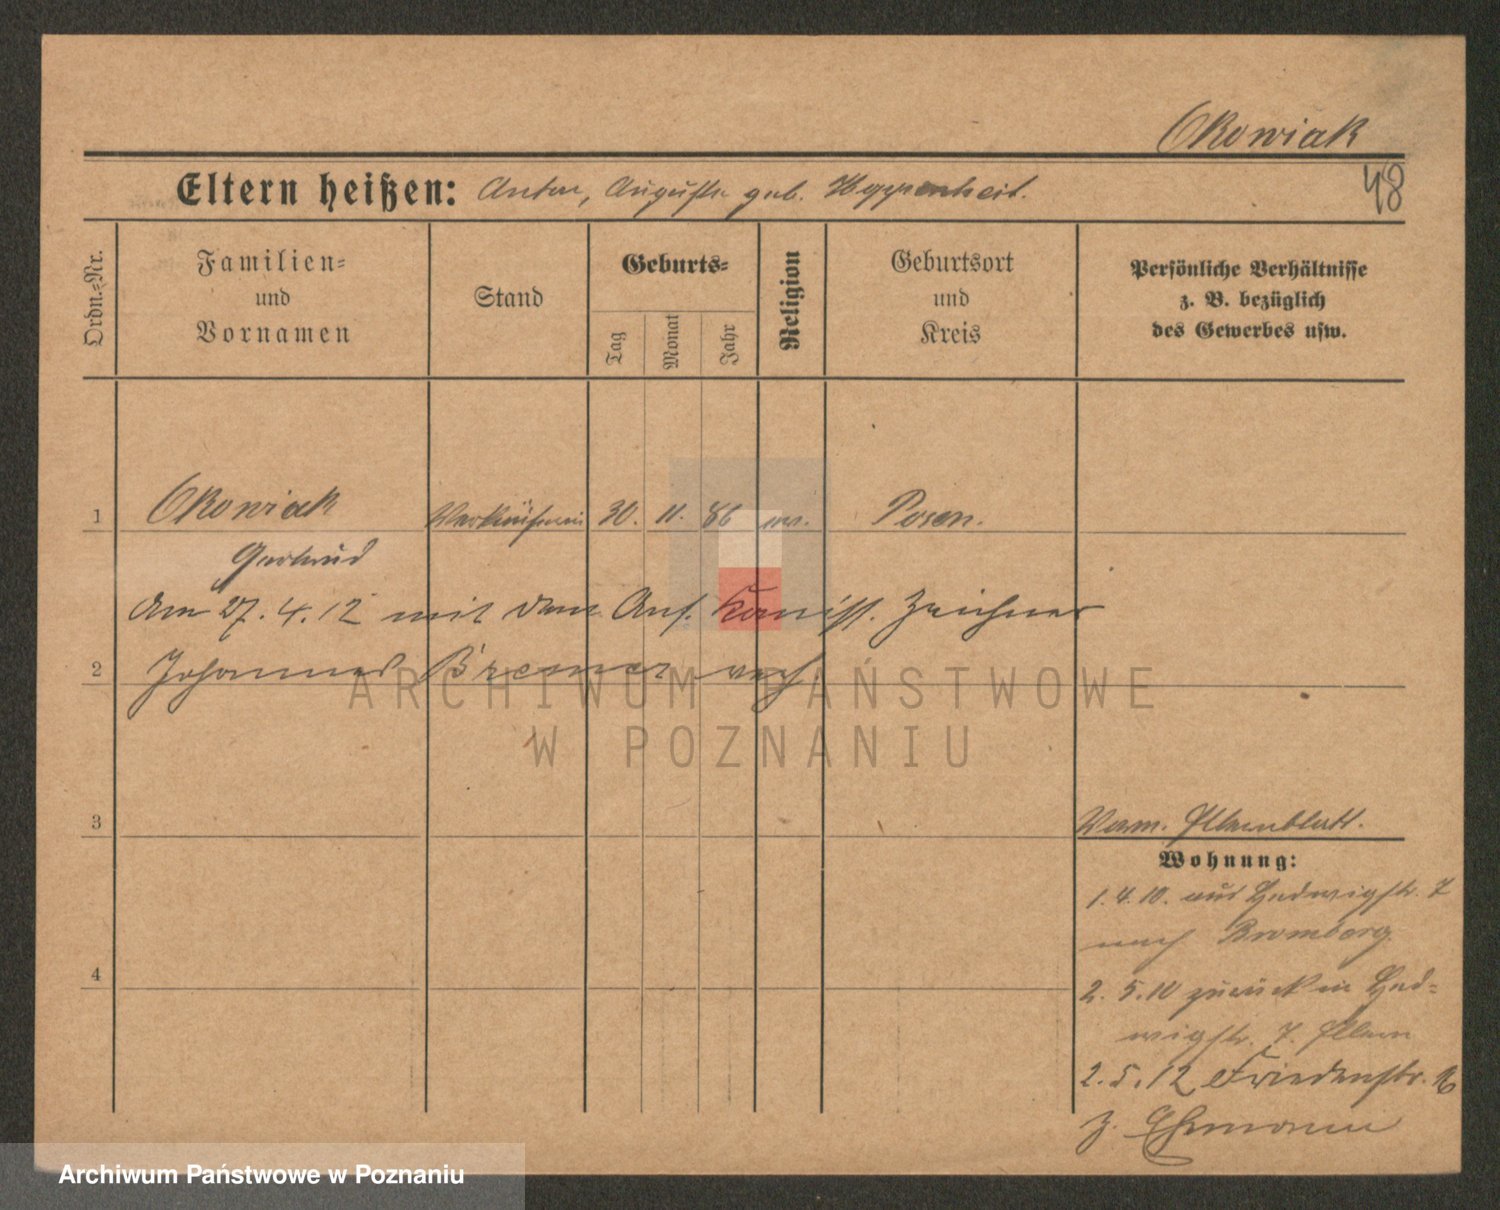 Okowiak
48
Eltern heißen: Anton, Auguste geb. Heppenheit.
Ordn.-Nr.
Familien- und Vornamen
Stand
Geburts-
Tag
Monat
Jahr
Religion
Geburtsort und Kreis
Persönliche Verhältnisse
z. B. bezüglich
des Gewerbes usw.
1 Okowiak Verkäuferin 30. 11. 86 ev. Posen.
Gertrud
Am 27.4.12 mit dem Zeichner
2 Johannes Bremer verh.
ARCHIWUM PAŃSTWOWE
W POZNANIU
3
Elternblatt.
Wohnung:
1.4.10. aus Hedwigstr. 7
nach Bromberg
4
2.5.10 zurück in Hed-
wigstr. 7. Eltern
2.5.12 Friedenstr.
z. Ehemann
Archiwum Państwowe w Poznaniu